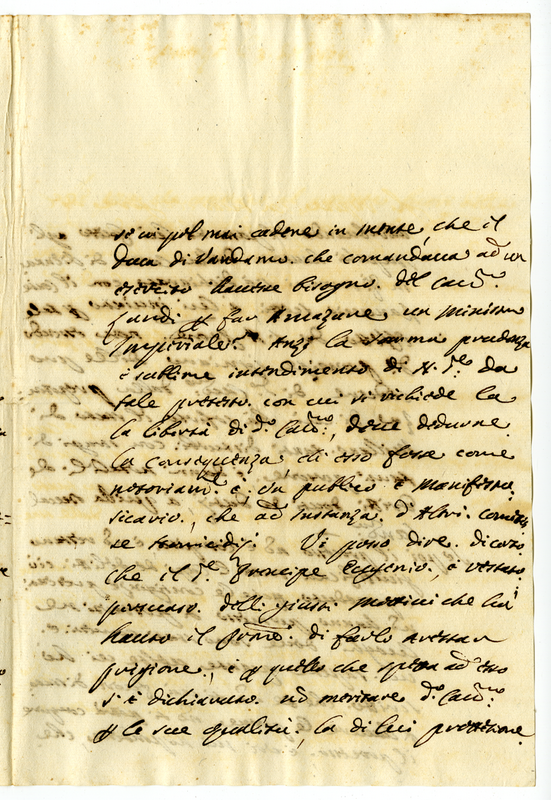 si vi pol mai cadere in mente, che il
Duca di Vandamo. che comandava ad un
esercito havesse bisogno. del Cav.ro
Landi p far Amazzare un ministro
Imperiale. Anzi la somma prudenza
e sublime intendimento di N. S.re da
tale pretesto. con cui si richiede la
la libertà di d.o Cav.ro, deve dedurne
la conseguenza, ch esso fosse come
notoriam.te è, un publico e manifesto
sicario., che ad instanza. d'Altri. commet-
te homicidij. Vi posso dire. di certo
che il S.re Prencipe Eugenio., è restato
persuaso. delli giusti motivi che hà
havuto il di farlo arrestar
prigione., e p quello che spetta ad esso
s'è dichiarato. nò meritare d.o Cav.ro
p le sue qualità, la di lui protetione.